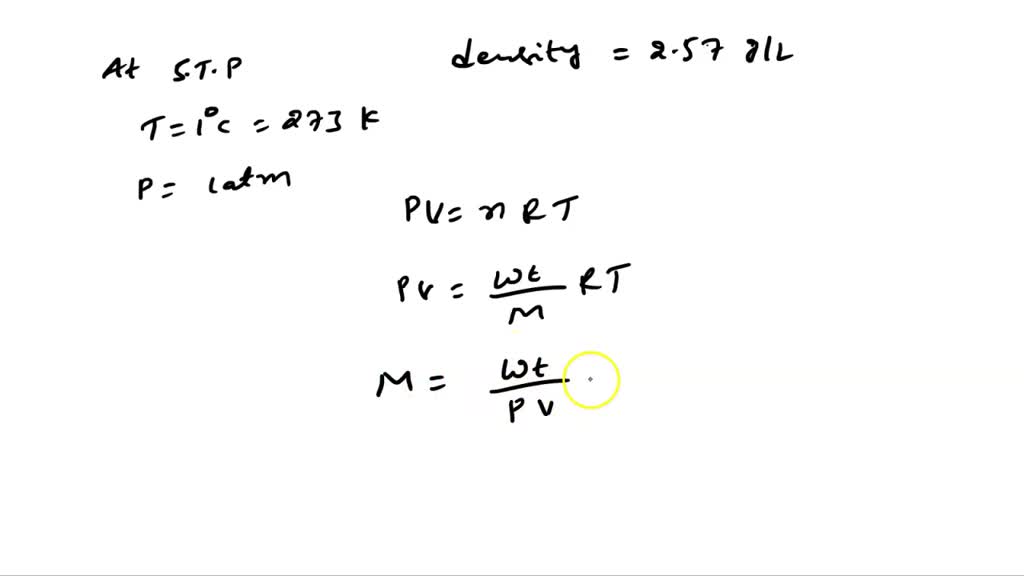 At S.T.P
density = 2.57 g/L
T = 1°C = 273 K
P = 1atm
PV = n RT
PV = Wt/M RT
M = Wt/PV